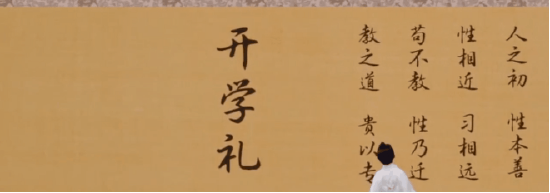 人之初 性本善
性相近 习相远
苟不教 性乃迁
教之道 貴以专
开学礼